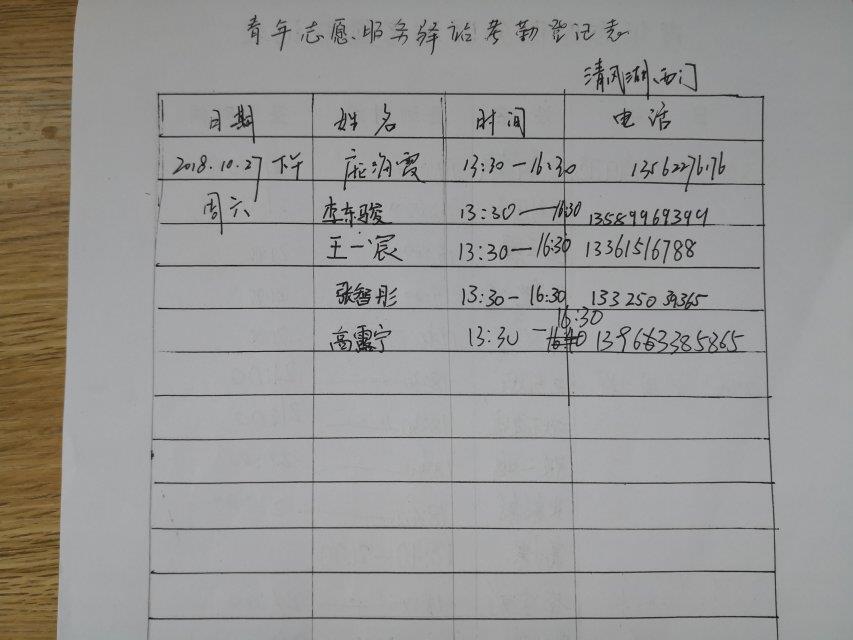 青年志愿服务驿站考勤登记表
清风湖西门
日期 姓名 时间 电话
2018.10.27下午 庞海霞 13:30-16:30 13562276176
周六 李东骏 13:30-16:30 13589969399
王一宸 13:30-16:30 13361516788
张智彤 13:30-16:30 13325039365
16:30
高露宁 13:30- 139663385865